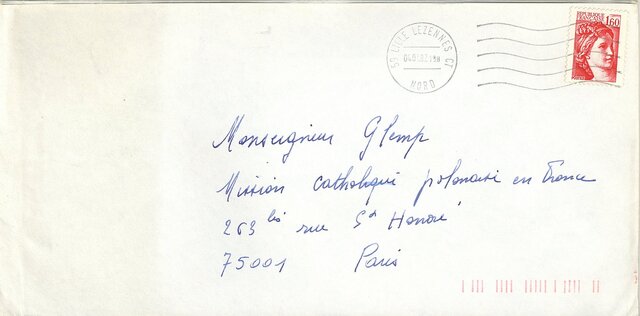 REPUBLIQUE
FRANCAISE
1,60
59 LILLE LEZENNES CT
NORD
Monseigneur Glemp
Mission catholique polonaise en France
263 bis rue St Honoré
75001 Paris